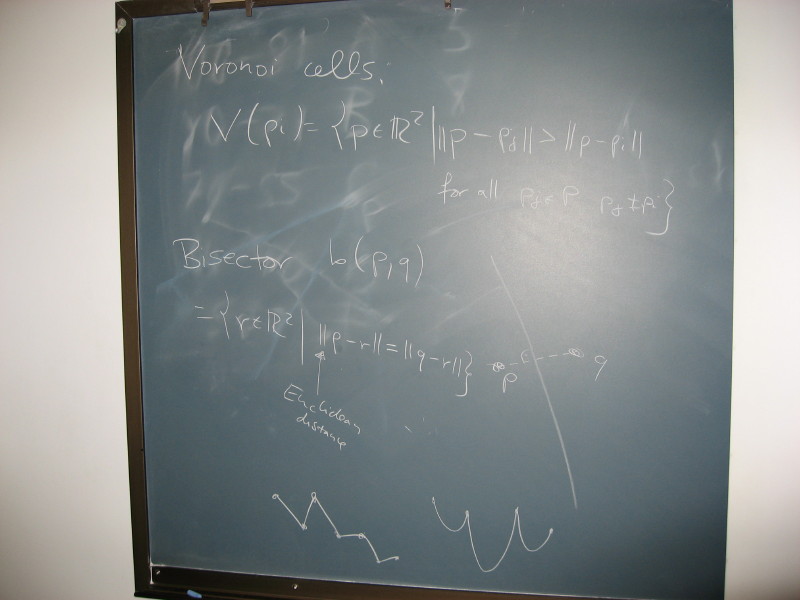 Voronoi cells:
V(pi) = {p∈ℝ² | ||p - pj|| > ||p - pi||
for all pj∈P pj≠pi}
Bisector b(p,q)
= {r∈ℝ² | ||p-r|| = ||q-r||}
p q
Euclidean
distance